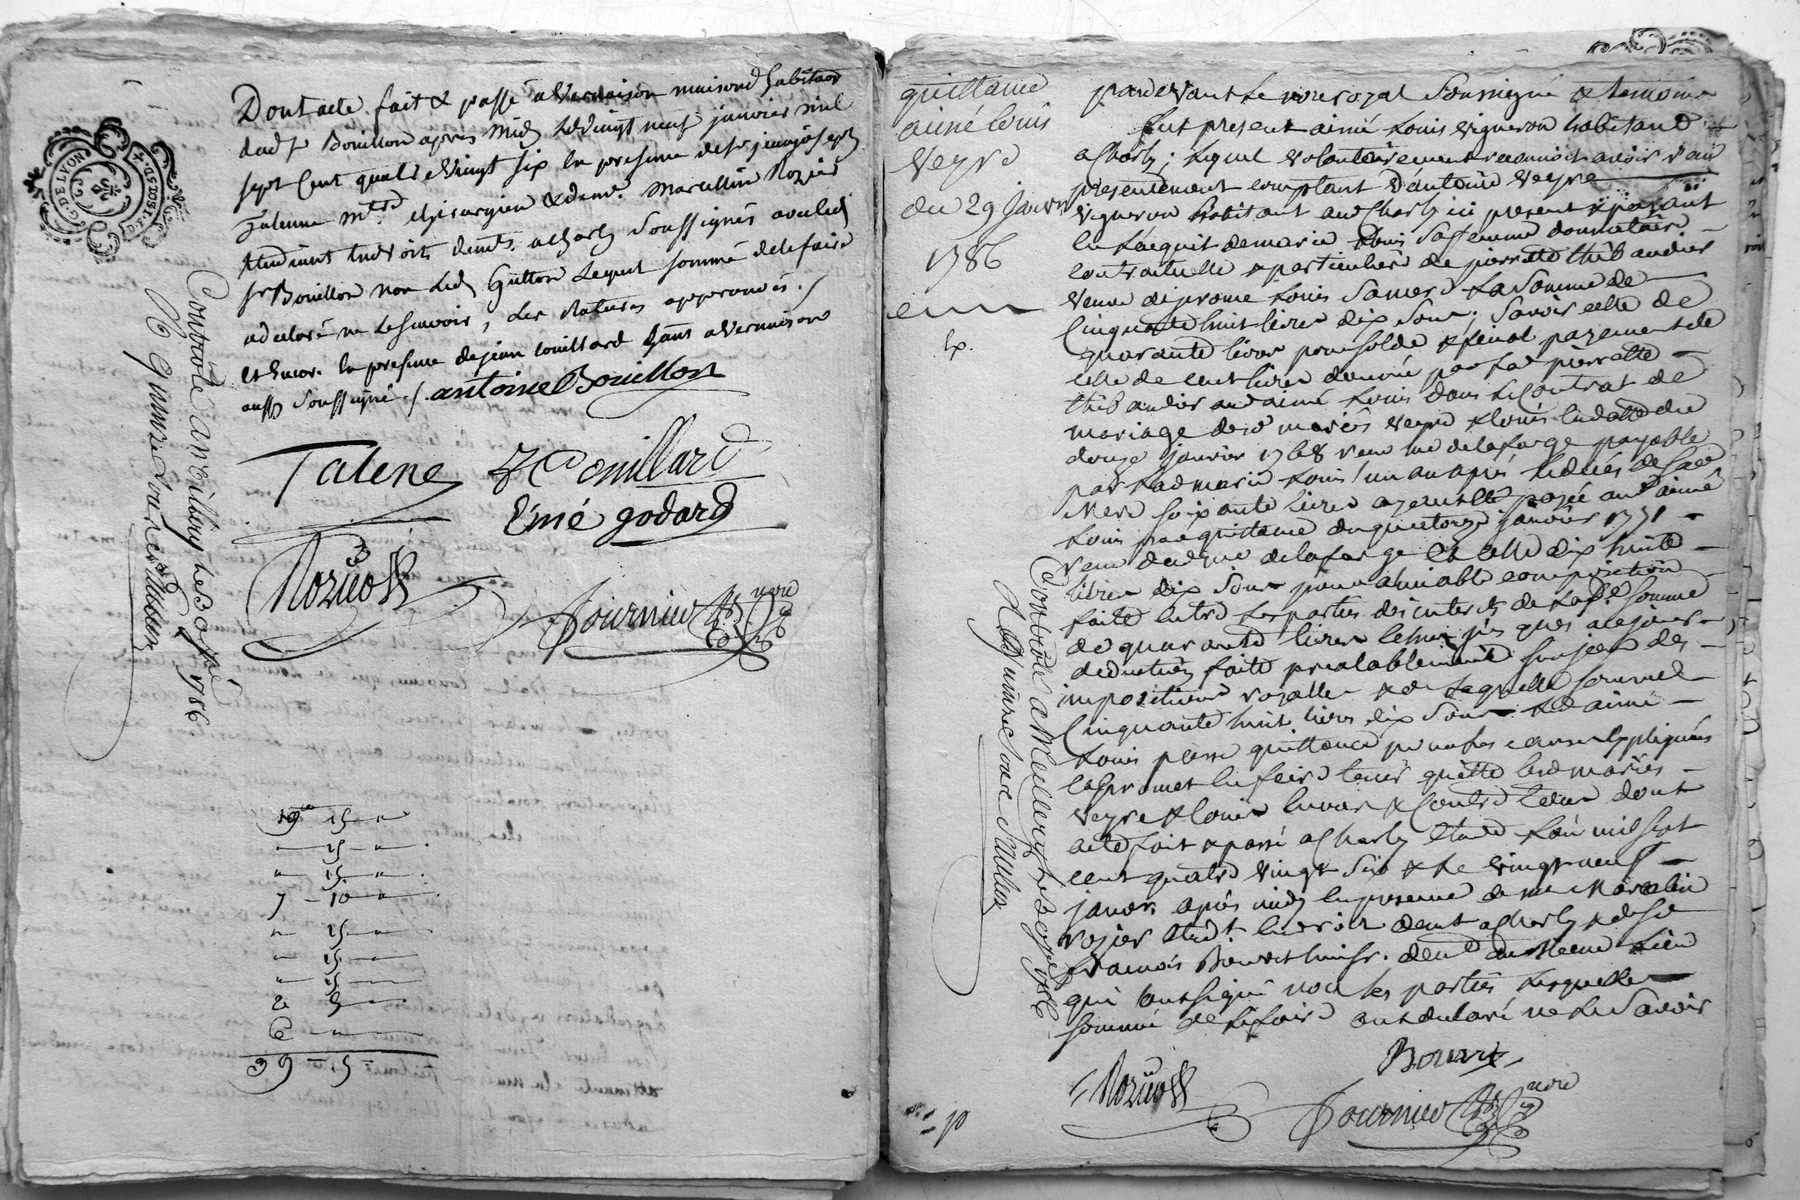 Dont acte fait & passé a Vernaison maison d'habitaon
dud Sr Bouillon apres midy le vingt neuf janvier mil
sept cent quatre vingt six en presence de Sr
Talenne mtre chirurgien & demt. Marcellin Rozier
etudiant en droits demts. a Charly soussignés avec led
Sr Bouillon non led Guitton lequel sommé de le faire
a declaré ne le sçavoir, les ratures approuvés ./
et encor. en presence de jean Couillard
aussy soussigné ./. antoine Bouillon
Talene JC Couillard
Emé godard
Rozier
Fournier nore
G. DE LYON
Controlé a Millery le 1786
R quinze sous
19 15
15
15
7 - 10
15
15
15
2 5
6
39 - 15
quittance
aimé Louis
Veyre
du 29 Janvier
1786
pardevant le nore royal soussigné & temoins
fut present aimé Louis vigneron habitant
a Charly; lequel volontairement reconnoit avoir
presentement comptant d'antoine Veyre
vigneron habitant aud Charly ici present & payant
en l'acquit de marie Louis sa femme donnataire
contractuelle & particuliere de pierrette thibaudier
veuve de jerome Louis sa mere la somme de
Cinquante huit livres dix sous; savoir celle de
quarante livres pour solde & final payement de
celle de cent livres donnée par lad pierrette
thibaudier aud aimé Louis dans le Contrat de
mariage desd mariés Veyre & Louis en datte du
douze janvier 1768 reçu me delafarge payable
par lad marie Louis un an après le décès de sad
Mere soixante livres ayant été payée aud aimé
Louis par quittance du quatorze janvier 1771
reçu dud me delafarge Et celle dix huit
livres dix sous pour amiable composition
faite entre les parties des interets de lad somme
de quarante livres echus jusques a ce jour
deduction faite prealablement des
impositions royalles & de laquelle somme
Cinquante huit livres dix sous led aimé
Louis passe quittance pour les causes expliquées
& promet en faire tenir quitte lesd mariés
Veyre & Louis envers & contre tous dont
acte fait & passé a Charly étude l'an mil sept
cent quatre vingt six & le vingt neuf
janvr. après midy en presence de me Marcelin
rozier etudt. en droit demt a Charly & de Sr
francois Bourrit huissr. demt au Meme Lieu
qui ont signé non les parties lesquelles
sommé de le faire ont declaré ne le savoir
Rozier
Fournier nore
Controlé a Millery le 1786
R quinze sous